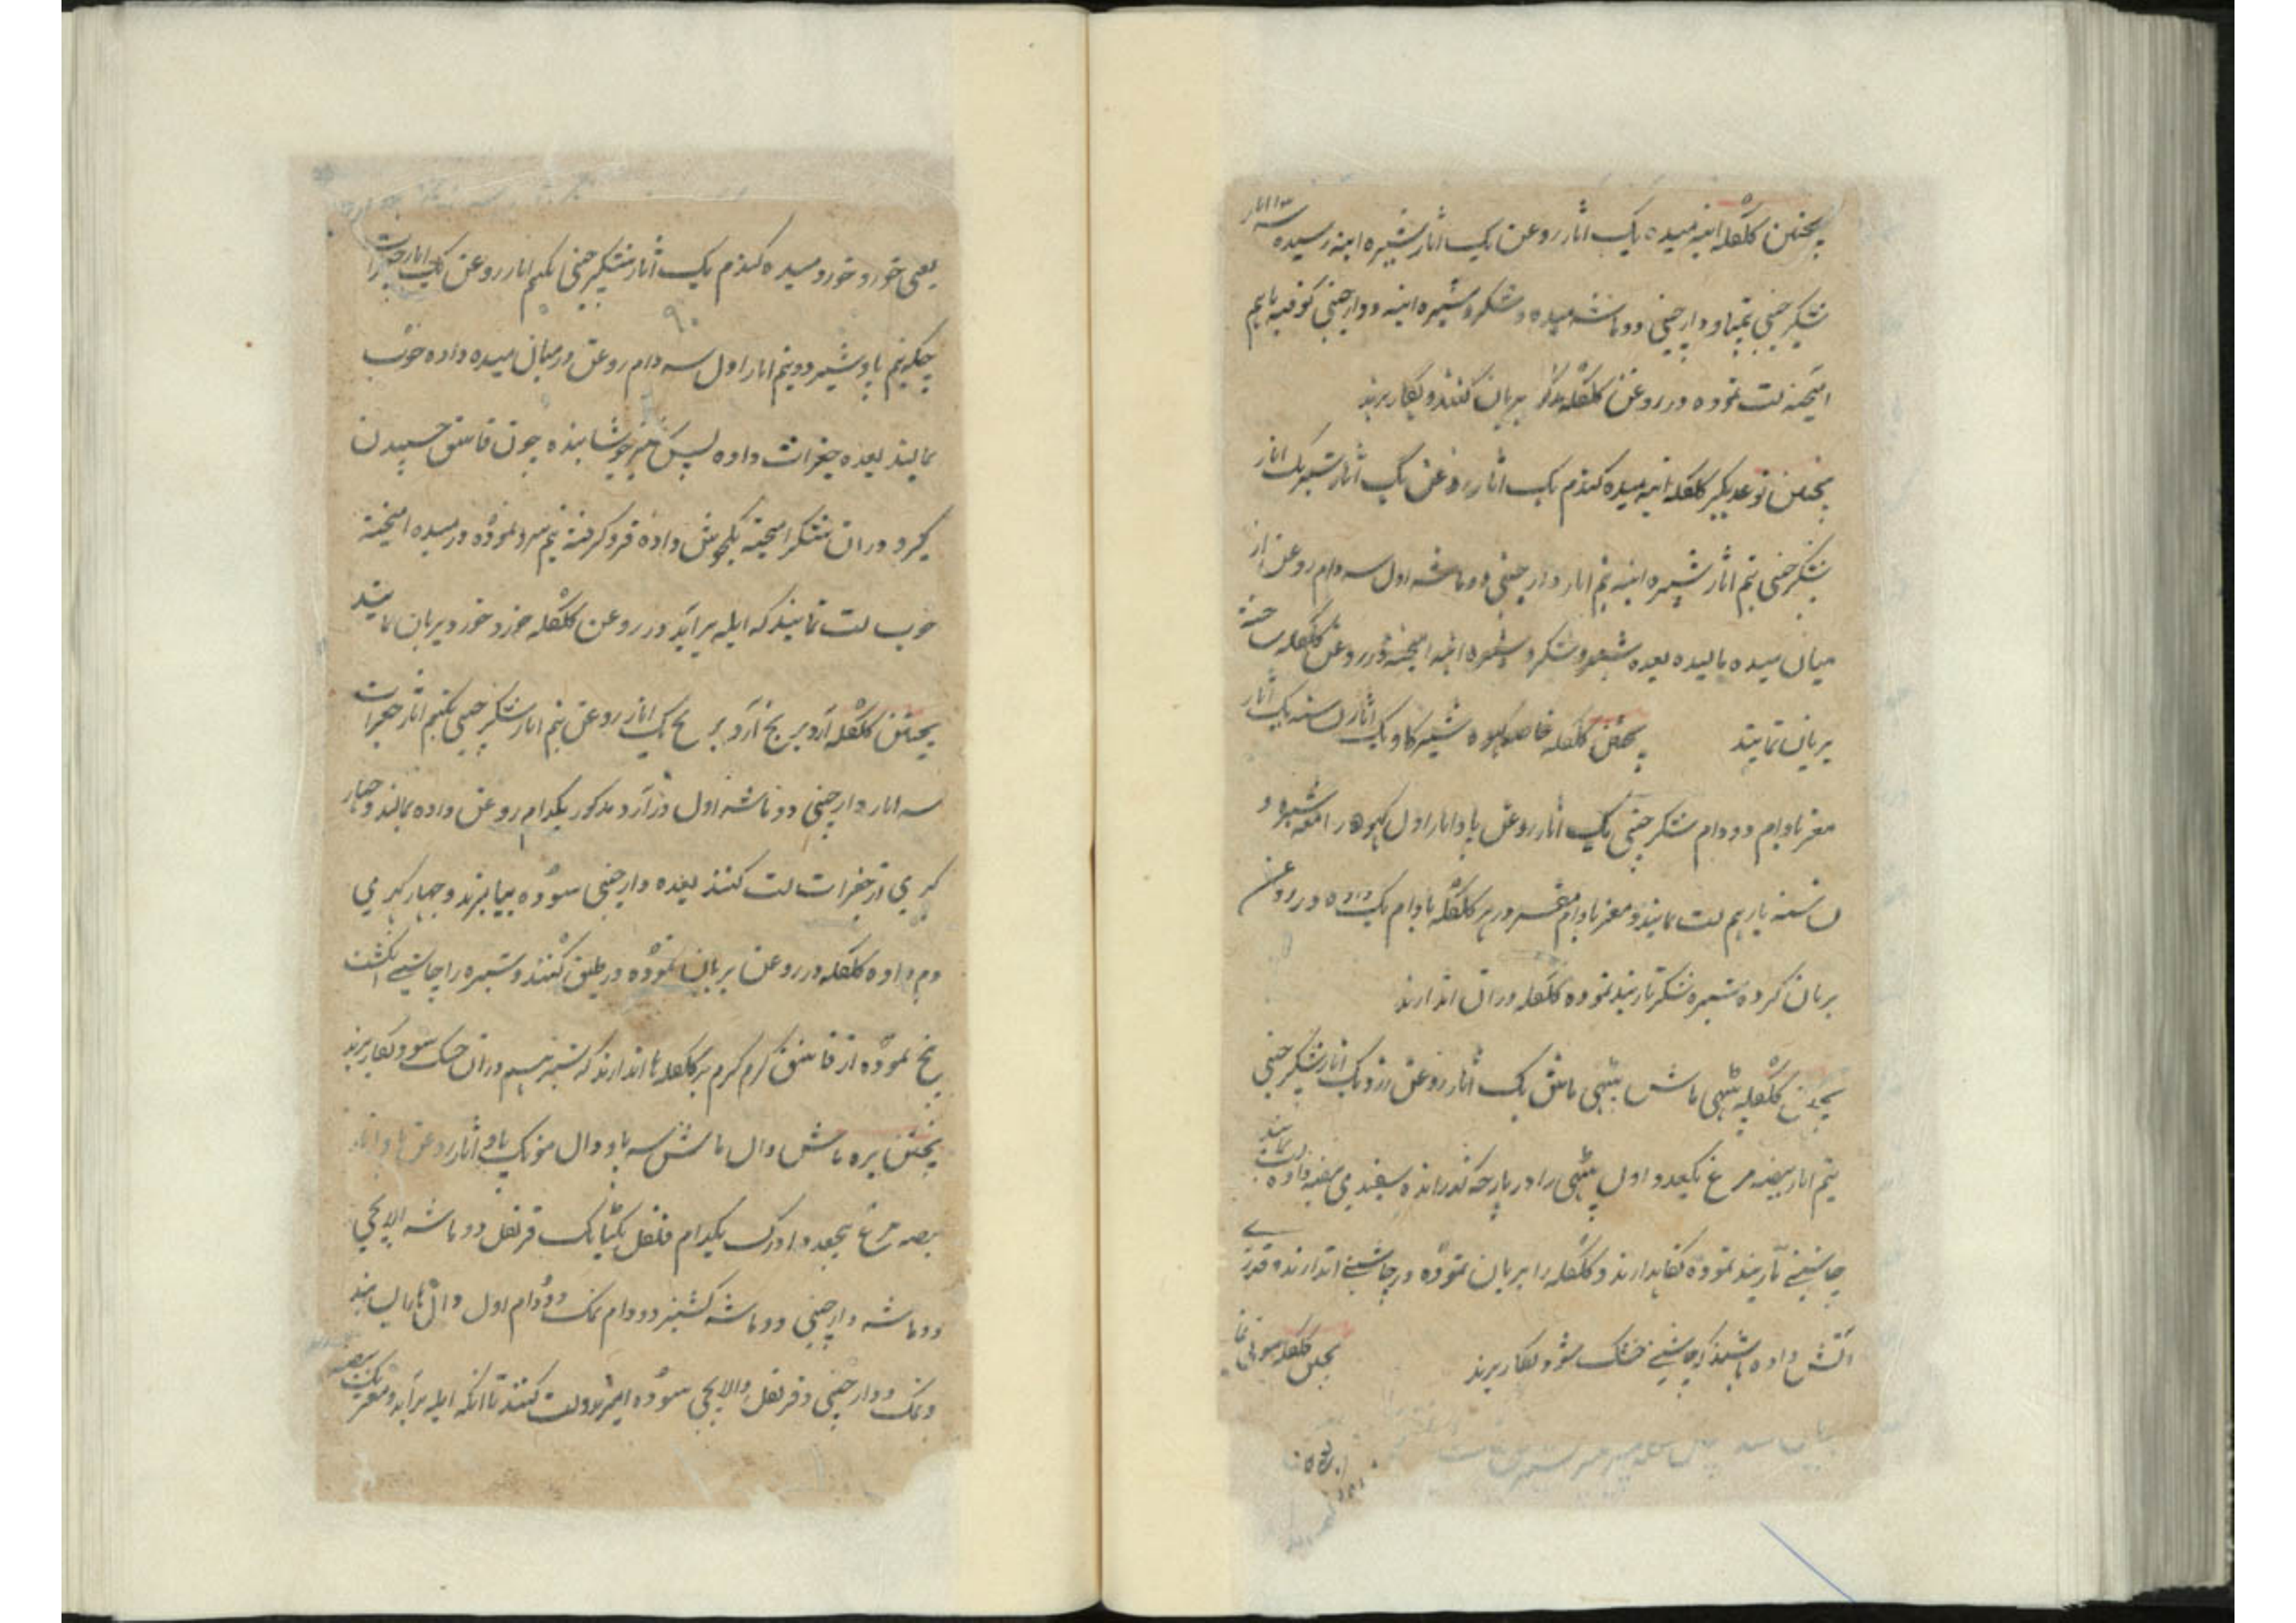 پختن کلکله انبه میده یک اثار روغن یک اثار شیره انبه رسیده سه اثار
شکر چینی دارچینی دو ماشه میده و شکر و شیره انبه و دارچینی کوفته باهم
امیخته لت نموده در روغن کلکله بریان کنند و بکار برند
پختن نوعدیکر کلکله انبه میده کندم یک اثار روغن یک اثار شیر یک اثار
شکر چینی نیم اثار شیره انبه نیم اثار دارچینی دو ماشه اول سه دام روغن از
میان میده مالیده بعده شیر و شکر و شیره انبه امیخته در روغن کلکله ساخته
بریان نمایند پختن کلکله خاصه کهوه شیر کاو یک اثار نشسته یک اثار
مغز بادام دو دام شکر چینی یک اثار روغن پاو اثار اول کهوه را معه شیره و
نشسته باهم لت نمایند و مغز بادام مقشر در هر کلکله بادام یک داده در روغن
بریان کرده شیره شکر تاربند نموده کلکله دران اندازند
پختن کلکله پتهی ماش پتهی ماش یک اثار روغن زرد یک اثار شکر چینی
نیم اثار بیضه مرغ یکعدد اول پتهی را در پارچه کذرانده سفیدی بیضه داده لت نمایند
چاشنی تاربند نموده نکاهدارند و کلکله را بریان نموده در چاشنی اندازند و قدری
اتش داده باشند که چاشنی خشک شود بکار برند پختن کلکله
یعنی خورد خورد میده کندم یک اثار شکر چینی یکنیم اثار روغن یک اثار جغرات
چکه نیم پاو شیر دو نیم اثار اول سه دام روغن درمیان میده داده خوب
بمالند بعده جغرات داده پس شیر جوشانیده چون قاشق چسپیدن
کیرد دران شکر امیخته یکجوش داده فرو کرفته نیم سرد نموده در میده امیخته
خوب لت نمایند که ابله براید در روغن کلکله خورد خورد بریان نمایند
پختن کلکله آرد برنج آرد برنج یک اثار روغن نیم اثار شکر چینی یکنیم اثار جغرات
سه اثار دارچینی دو ماشه اول در آرد مذکور یکدام روغن داده بمالند و چهار
کهری از جغرات لت کنند بعده دارچینی سوده بیامیزند و چهار کهری
دم داده کلکله در روغن بریان نموده در طبق کنند و شیره را چاشنی انکشت
پیچ نموده از قاشق کرم کرم بر کلکله ها اندازند که شیره هم دران خشک شود بکار برند
پختن بره ماش دال ماش سه پاو دال مونک پاو اثار روغن پاو اثار
بیضه مرغ پنجعدد ادرک یکدام فلفل یکتانک قرنفل دو ماشه الاچی
دو ماشه دارچینی دو ماشه کشنیز دو دام نمک دو دام اول دال ها را بسایند
و نمک و دارچینی و قرنفل والاچی سوده امیزند و لت کنند تا انکه ابله براید و